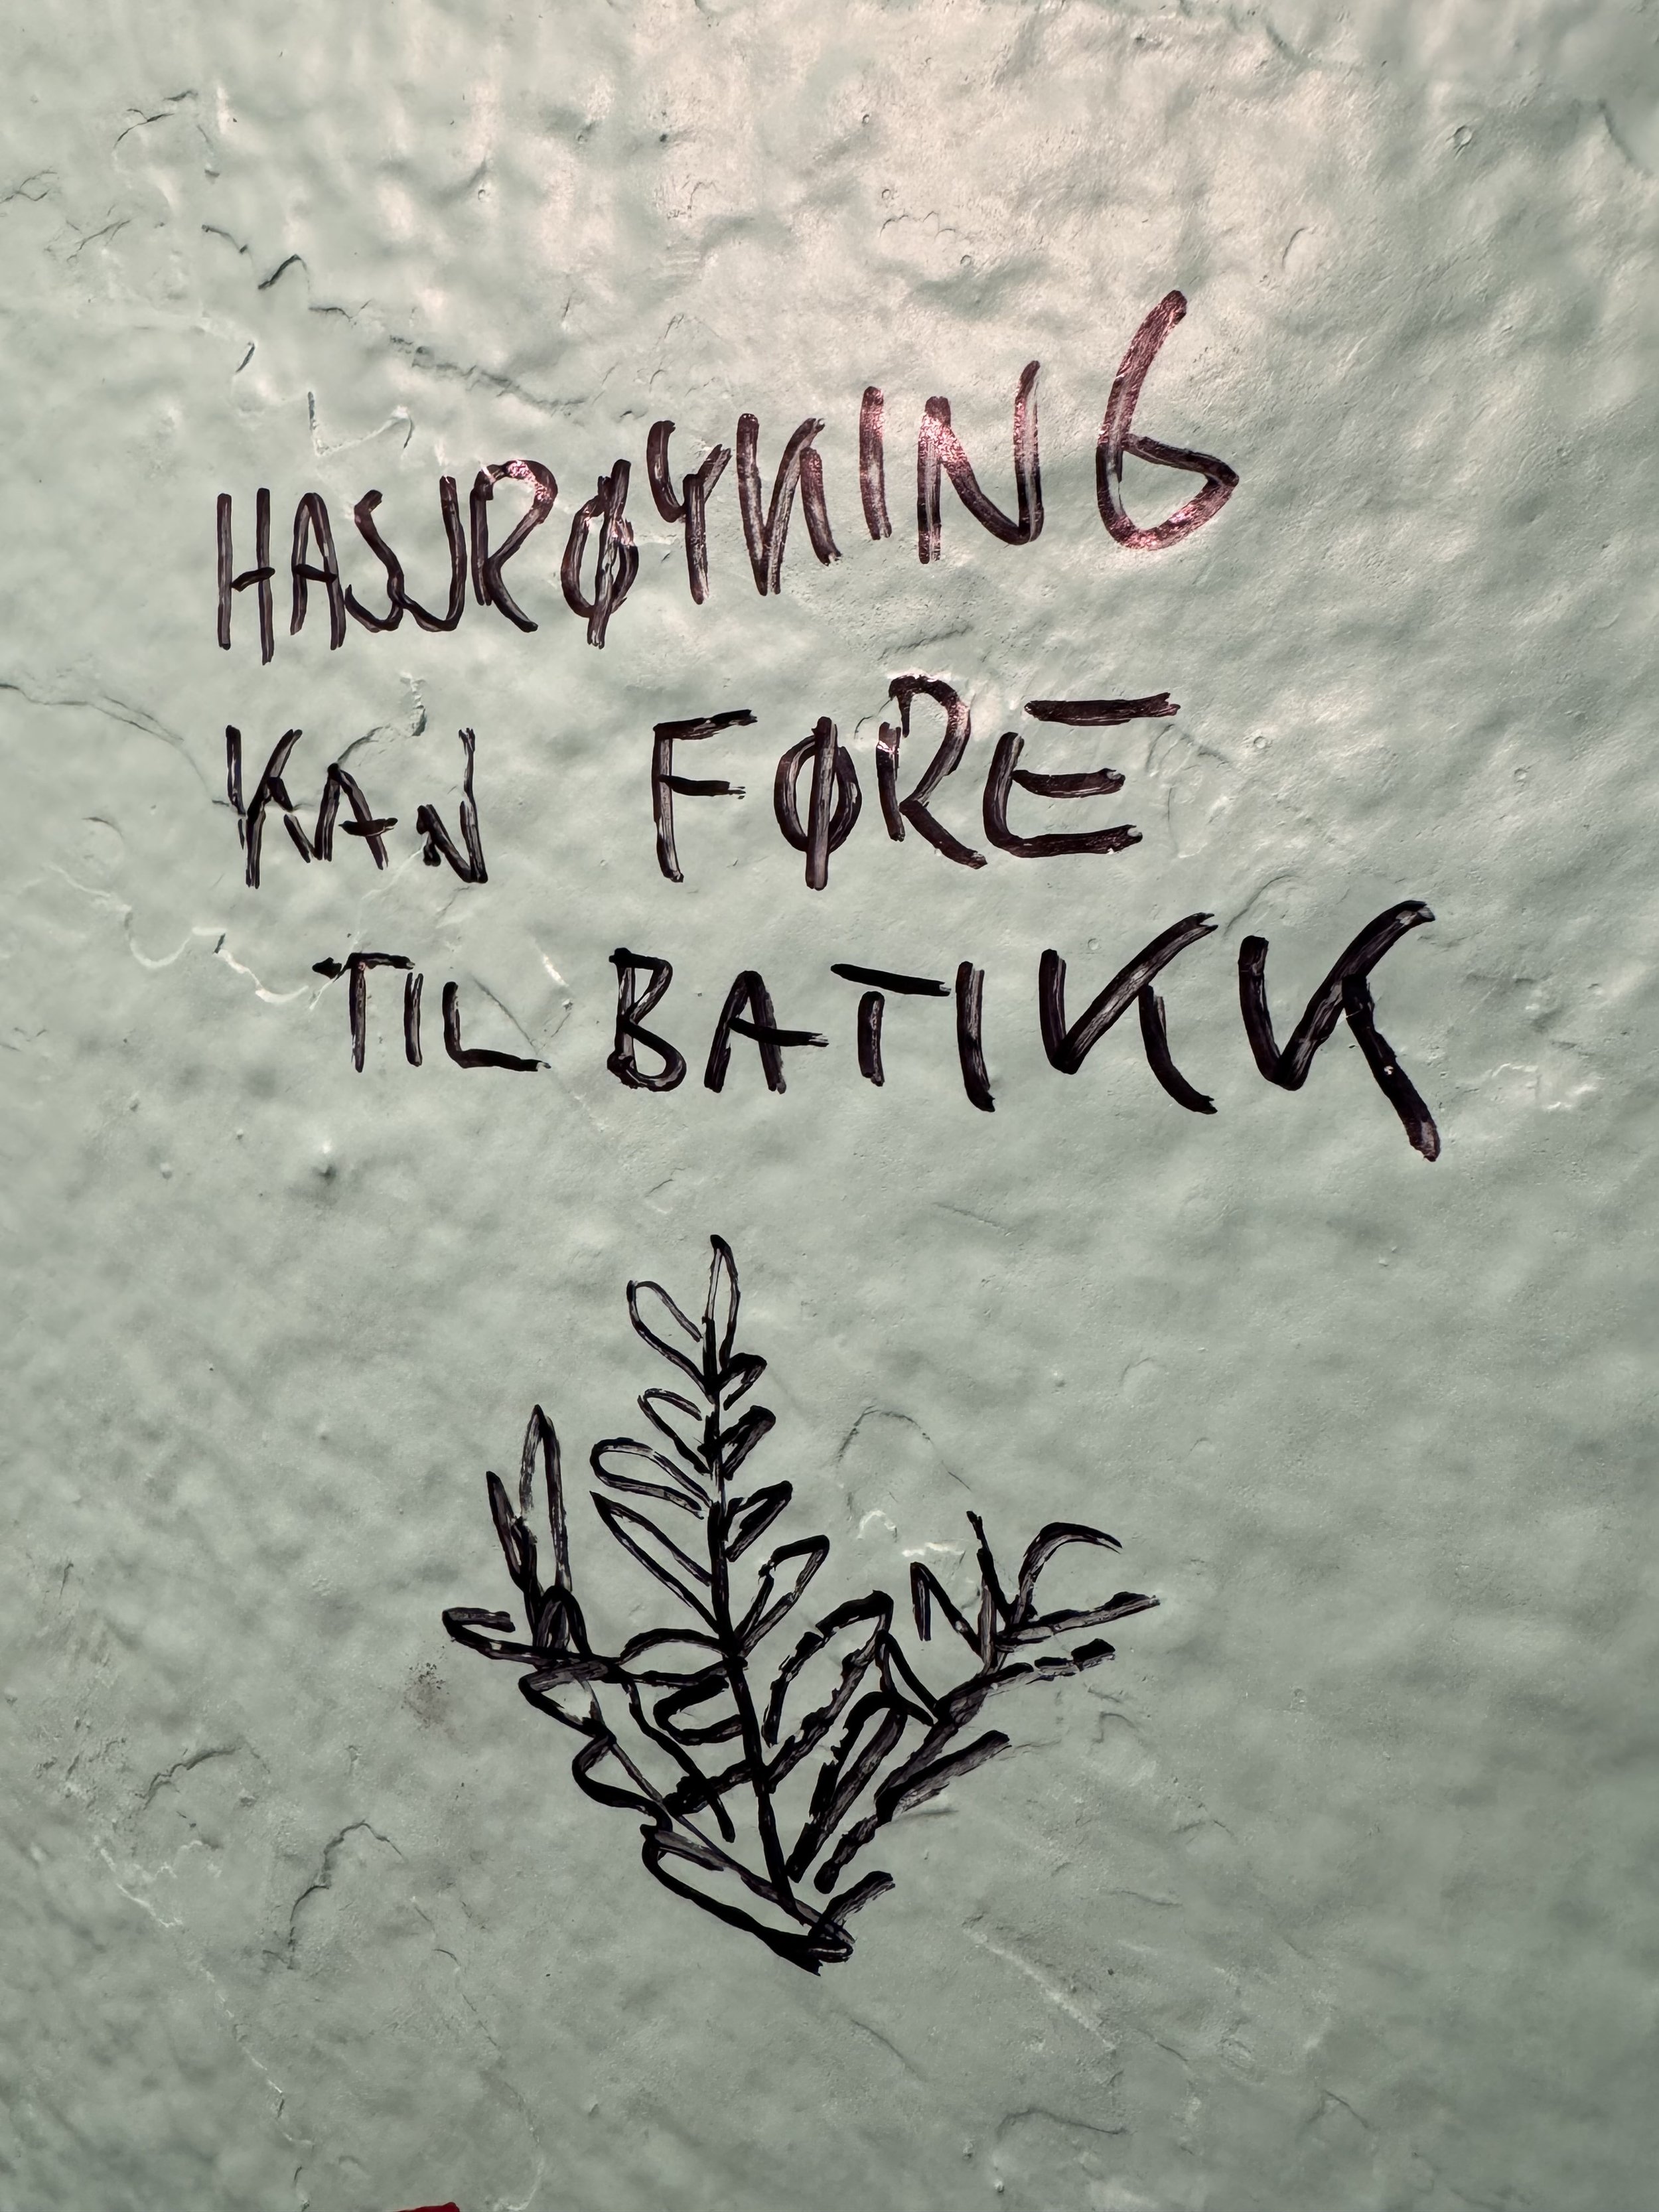 HASJRØYKING
KAN FØRE
TIL BATIKK